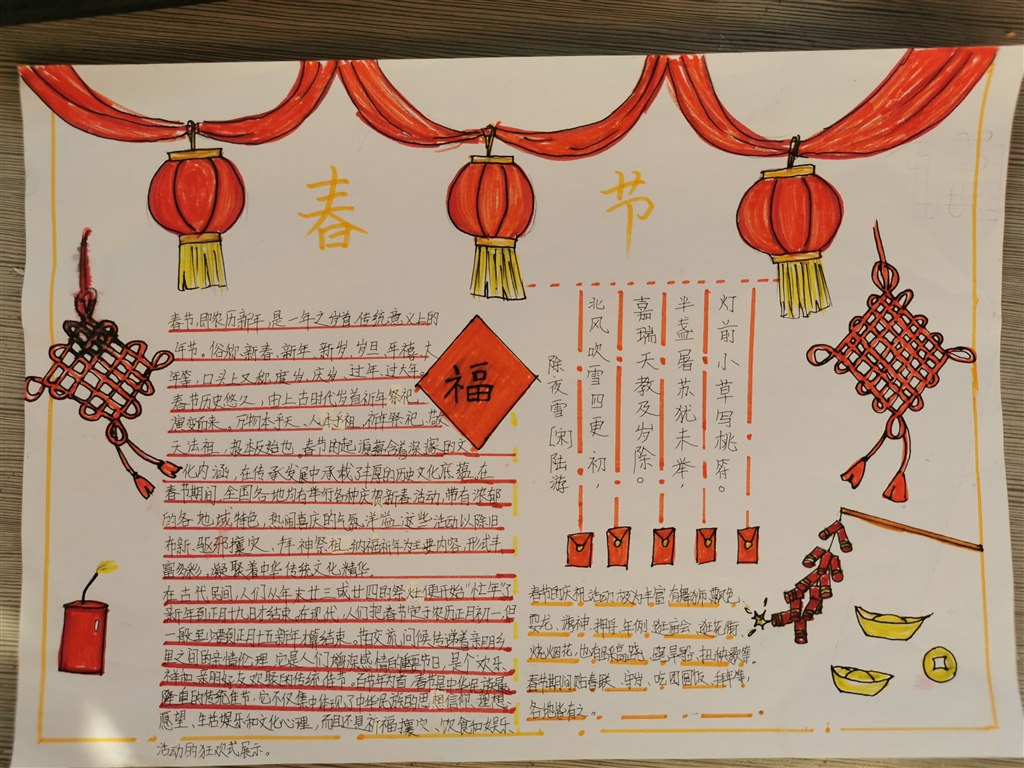 春节
春节,即农历新年,是一年之岁首,传统意义上的
年节。俗称新春、新年、新岁、岁旦、年禧、大
年等,口头上又称度岁、庆岁、过年、过大年。
春节历史悠久,由上古时代岁首祈年祭祀
演变而来。万物本乎天、人本乎祖,祈年祭祀、敬
天法祖,报本反始也。春节的起源蕴含着深邃的文
化内涵,在传承发展中承载了丰厚的历史文化底蕴。在
春节期间,全国各地均有举行各种庆贺新春活动,带有浓郁
的各地域特色,热闹喜庆的气氛洋溢。这些活动以除旧
布新、驱邪攘灾、拜神祭祖、纳福祈年为主要内容,形式丰
富多彩,凝聚着中华传统文化精华。
在古代民间,人们从年末廿三或廿四的祭灶便开始"忙年"了,
新年到正月十九日才结束。在现代,人们把春节定于农历正月初一,但
一般至少要到正月十五新年才算结束,
里之间的亲情伦理,它是人们增深感情的重要节日,是个欢乐
祥和、亲朋好友欢聚的传统佳节。百节年为首,春节是中华民族最
隆重的传统佳节,它不仅集中体现了中华民族的思想信仰、理想
愿望、生活娱乐和文化心理,而且还是祈福攘灾、饮食和娱乐
活动的狂欢式展示。
福
除夜雪 [宋]陆游
北风吹雪四更初,
嘉瑞天教及岁除。
半盏屠苏犹未举,
灯前小草写桃符。
春节的庆祝活动极为丰富,有舞狮、飘色、
耍龙、游神、押舟、年例、逛庙会、逛花街、
烧烟花,也有踩高跷、跑旱船、扭秧歌等。
春节期间贴春联、守岁、吃团圆饭、拜年等,
各地皆有之。